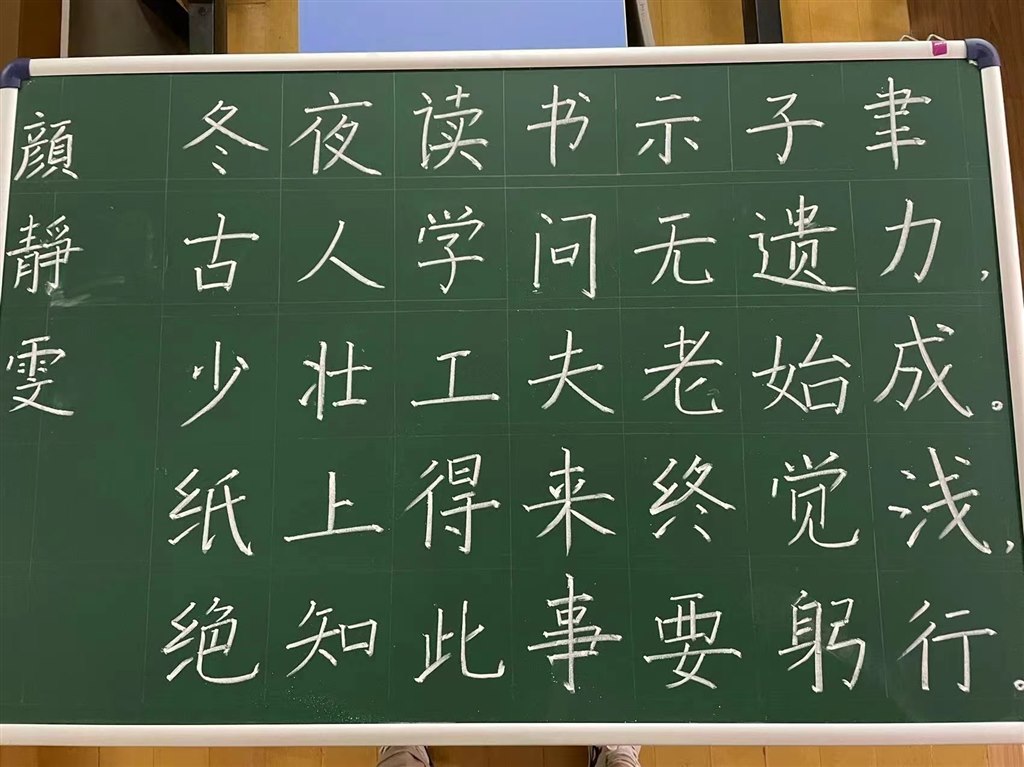 冬夜读书示子聿
古人学问无遗力,
少壮工夫老始成。
纸上得来终觉浅,
绝知此事要躬行。
顔靜雯